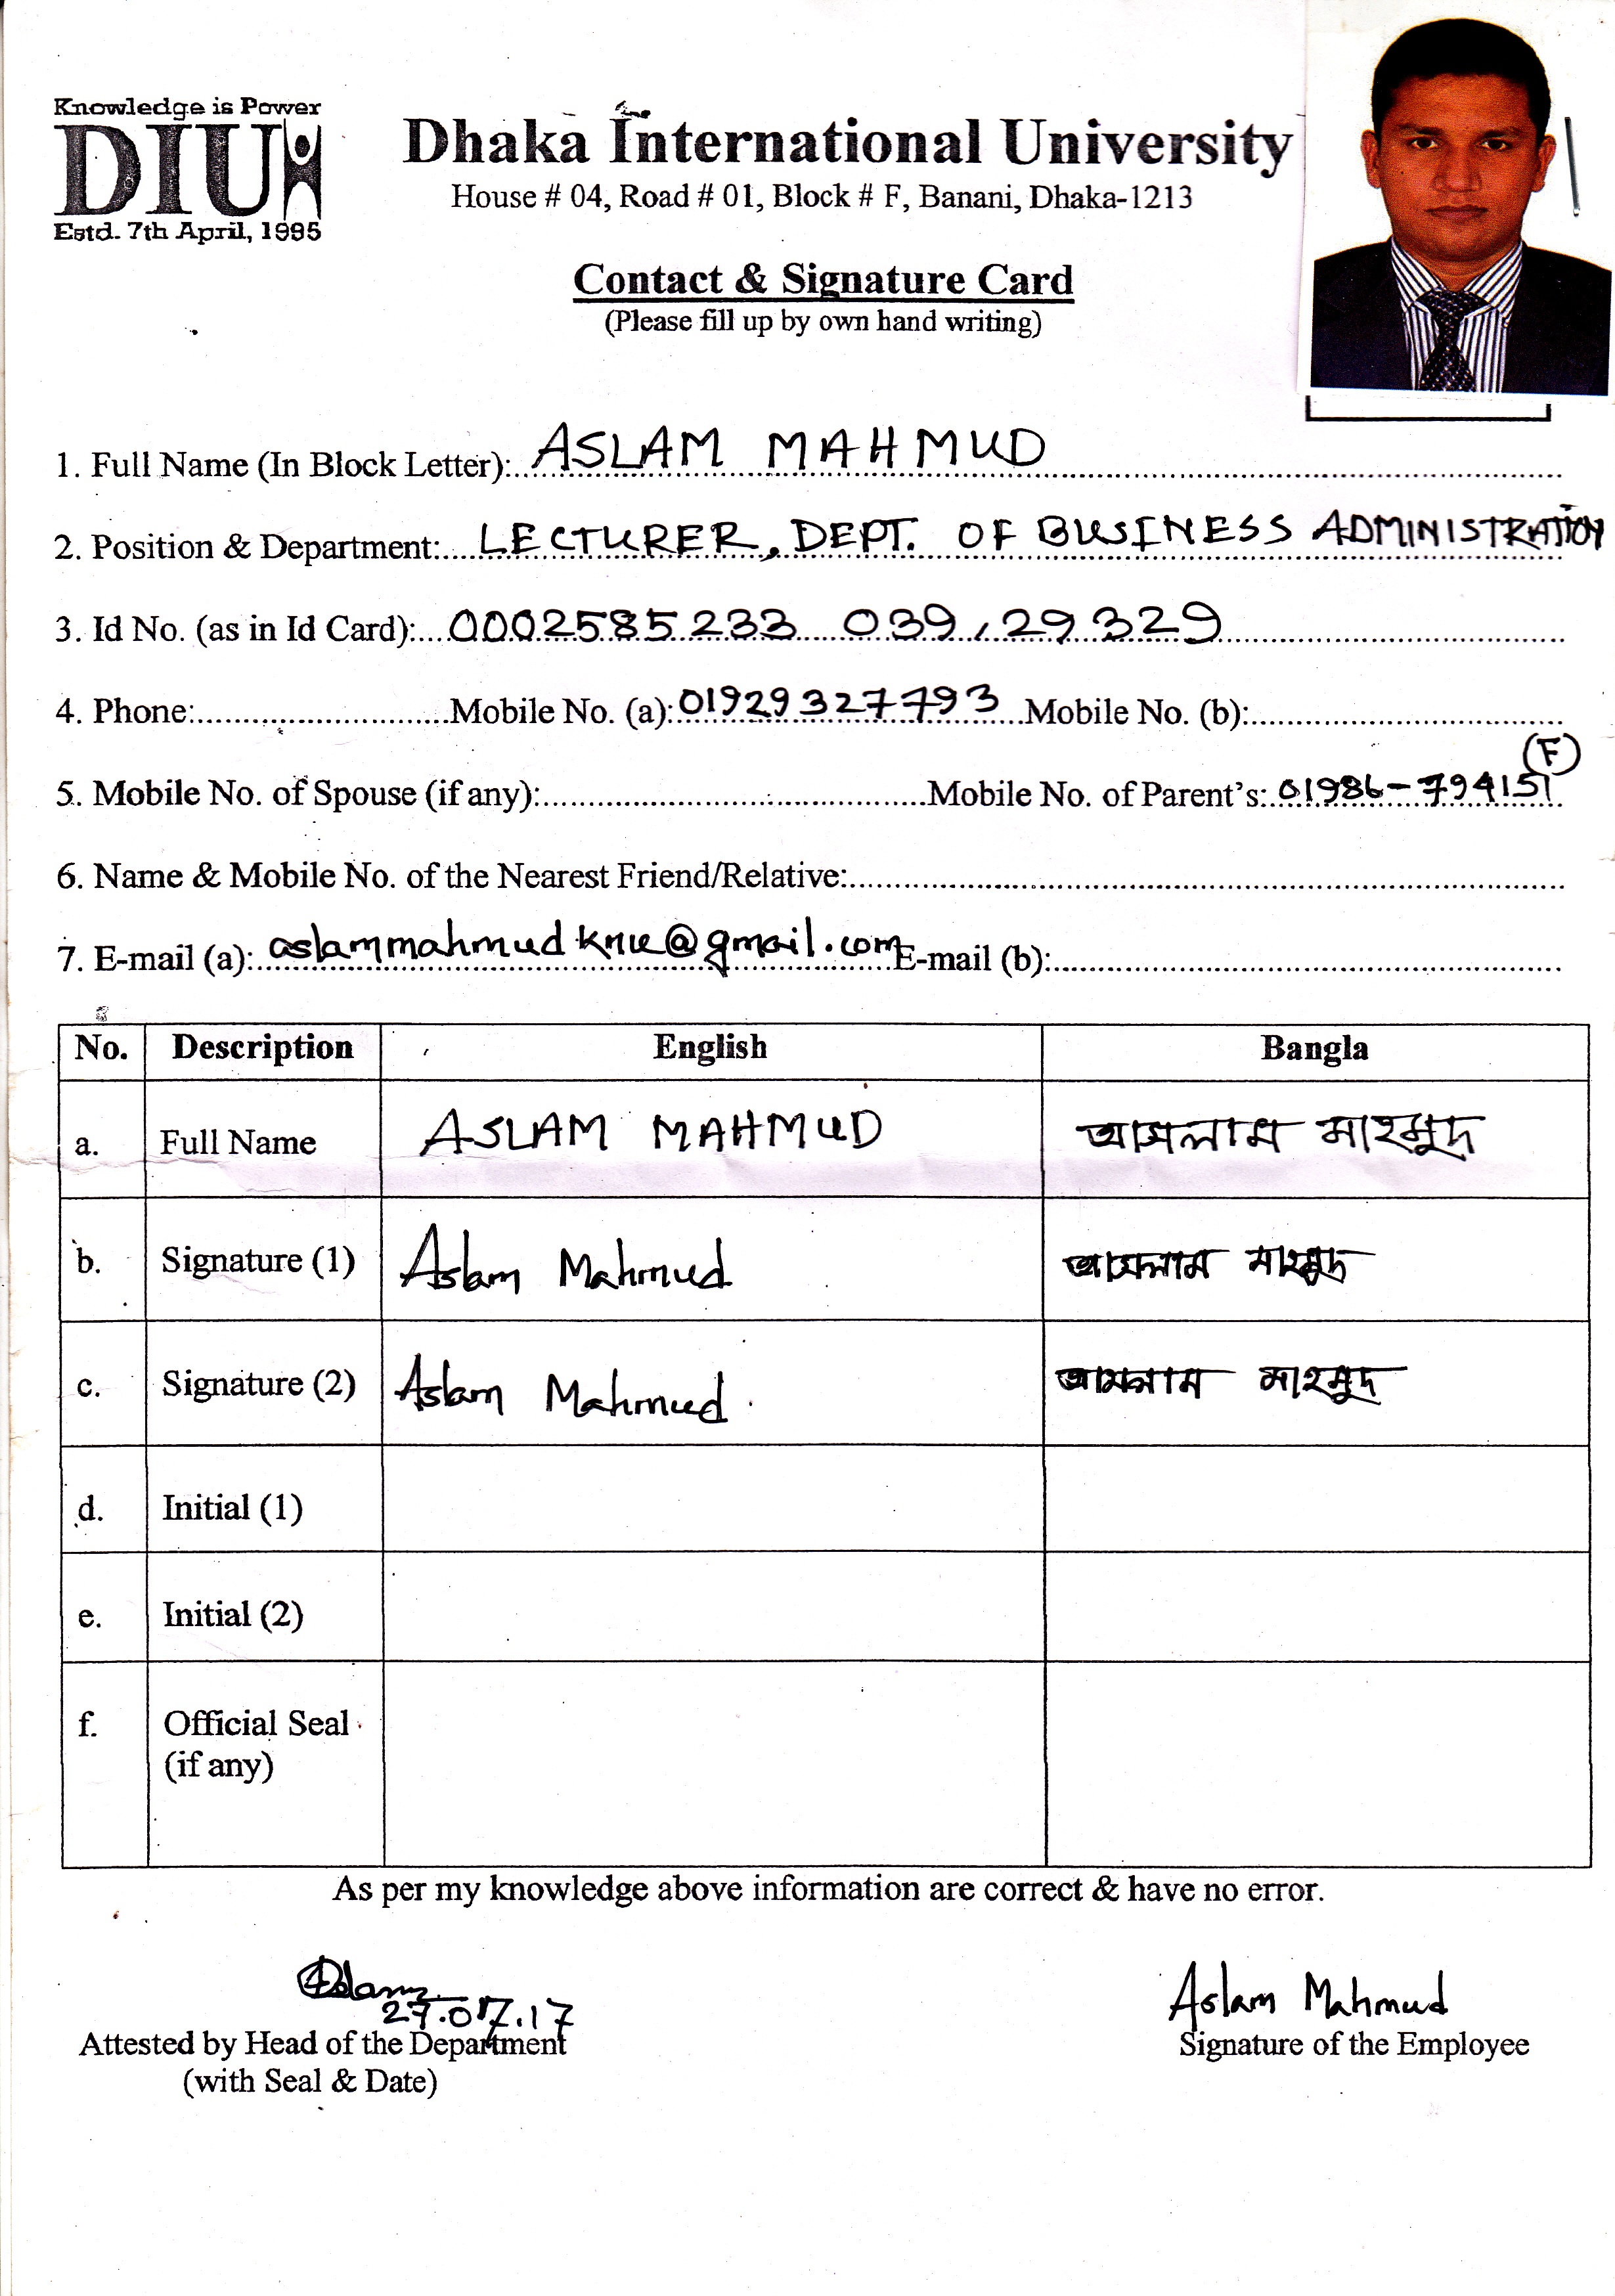 Knowledge is Power
DIU
Estd. 7th April, 1995
Dhaka International University
House # 04, Road # 01, Block # F, Banani, Dhaka-1213
Contact & Signature Card
(Please fill up by own hand writing)
1. Full Name (In Block Letter): ASLAM MAHMUD
2. Position & Department: LECTURER, DEPT. OF BUSINESS ADMINISTRATION
3. Id No. (as in Id Card): 0002585233 039,29329
4. Phone: Mobile No. (a): 01929327793 Mobile No. (b):
(F)
5. Mobile No. of Spouse (if any): Mobile No. of Parent's: 01986-794151
6. Name & Mobile No. of the Nearest Friend/Relative:
7. E-mail (a): aslammahmudknu@gmail.com E-mail (b):
No. Description English Bangla
a. Full Name ASLAM MAHMUD আসলাম মাহমুদ
b. Signature (1) Aslam Mahmud আসলাম মাহমুদ
c. Signature (2) Aslam Mahmud. আসলাম মাহমুদ
d. Initial (1)
e. Initial (2)
f. Official Seal
(if any)
As per my knowledge above information are correct & have no error.
27.07.17
Aslam Mahmud
Attested by Head of the Department Signature of the Employee
(with Seal & Date)